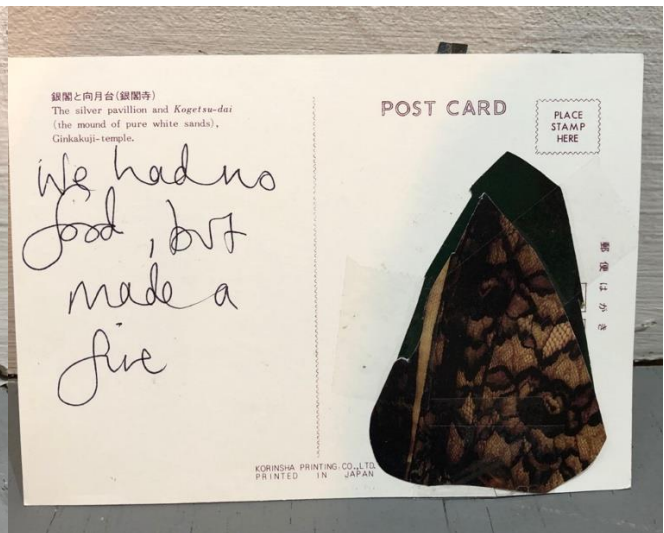 銀閣と向月台(銀閣寺)
The silver pavillion and Kogetsu-dai
(the mound of pure white sands),
Ginkakuji-temple.
We had no
food, but
made a
fire
POST CARD
PLACE
STAMP
HERE
郵便はがき
KORINSHA PRINTING CO.,LTD.
PRINTED IN JAPAN